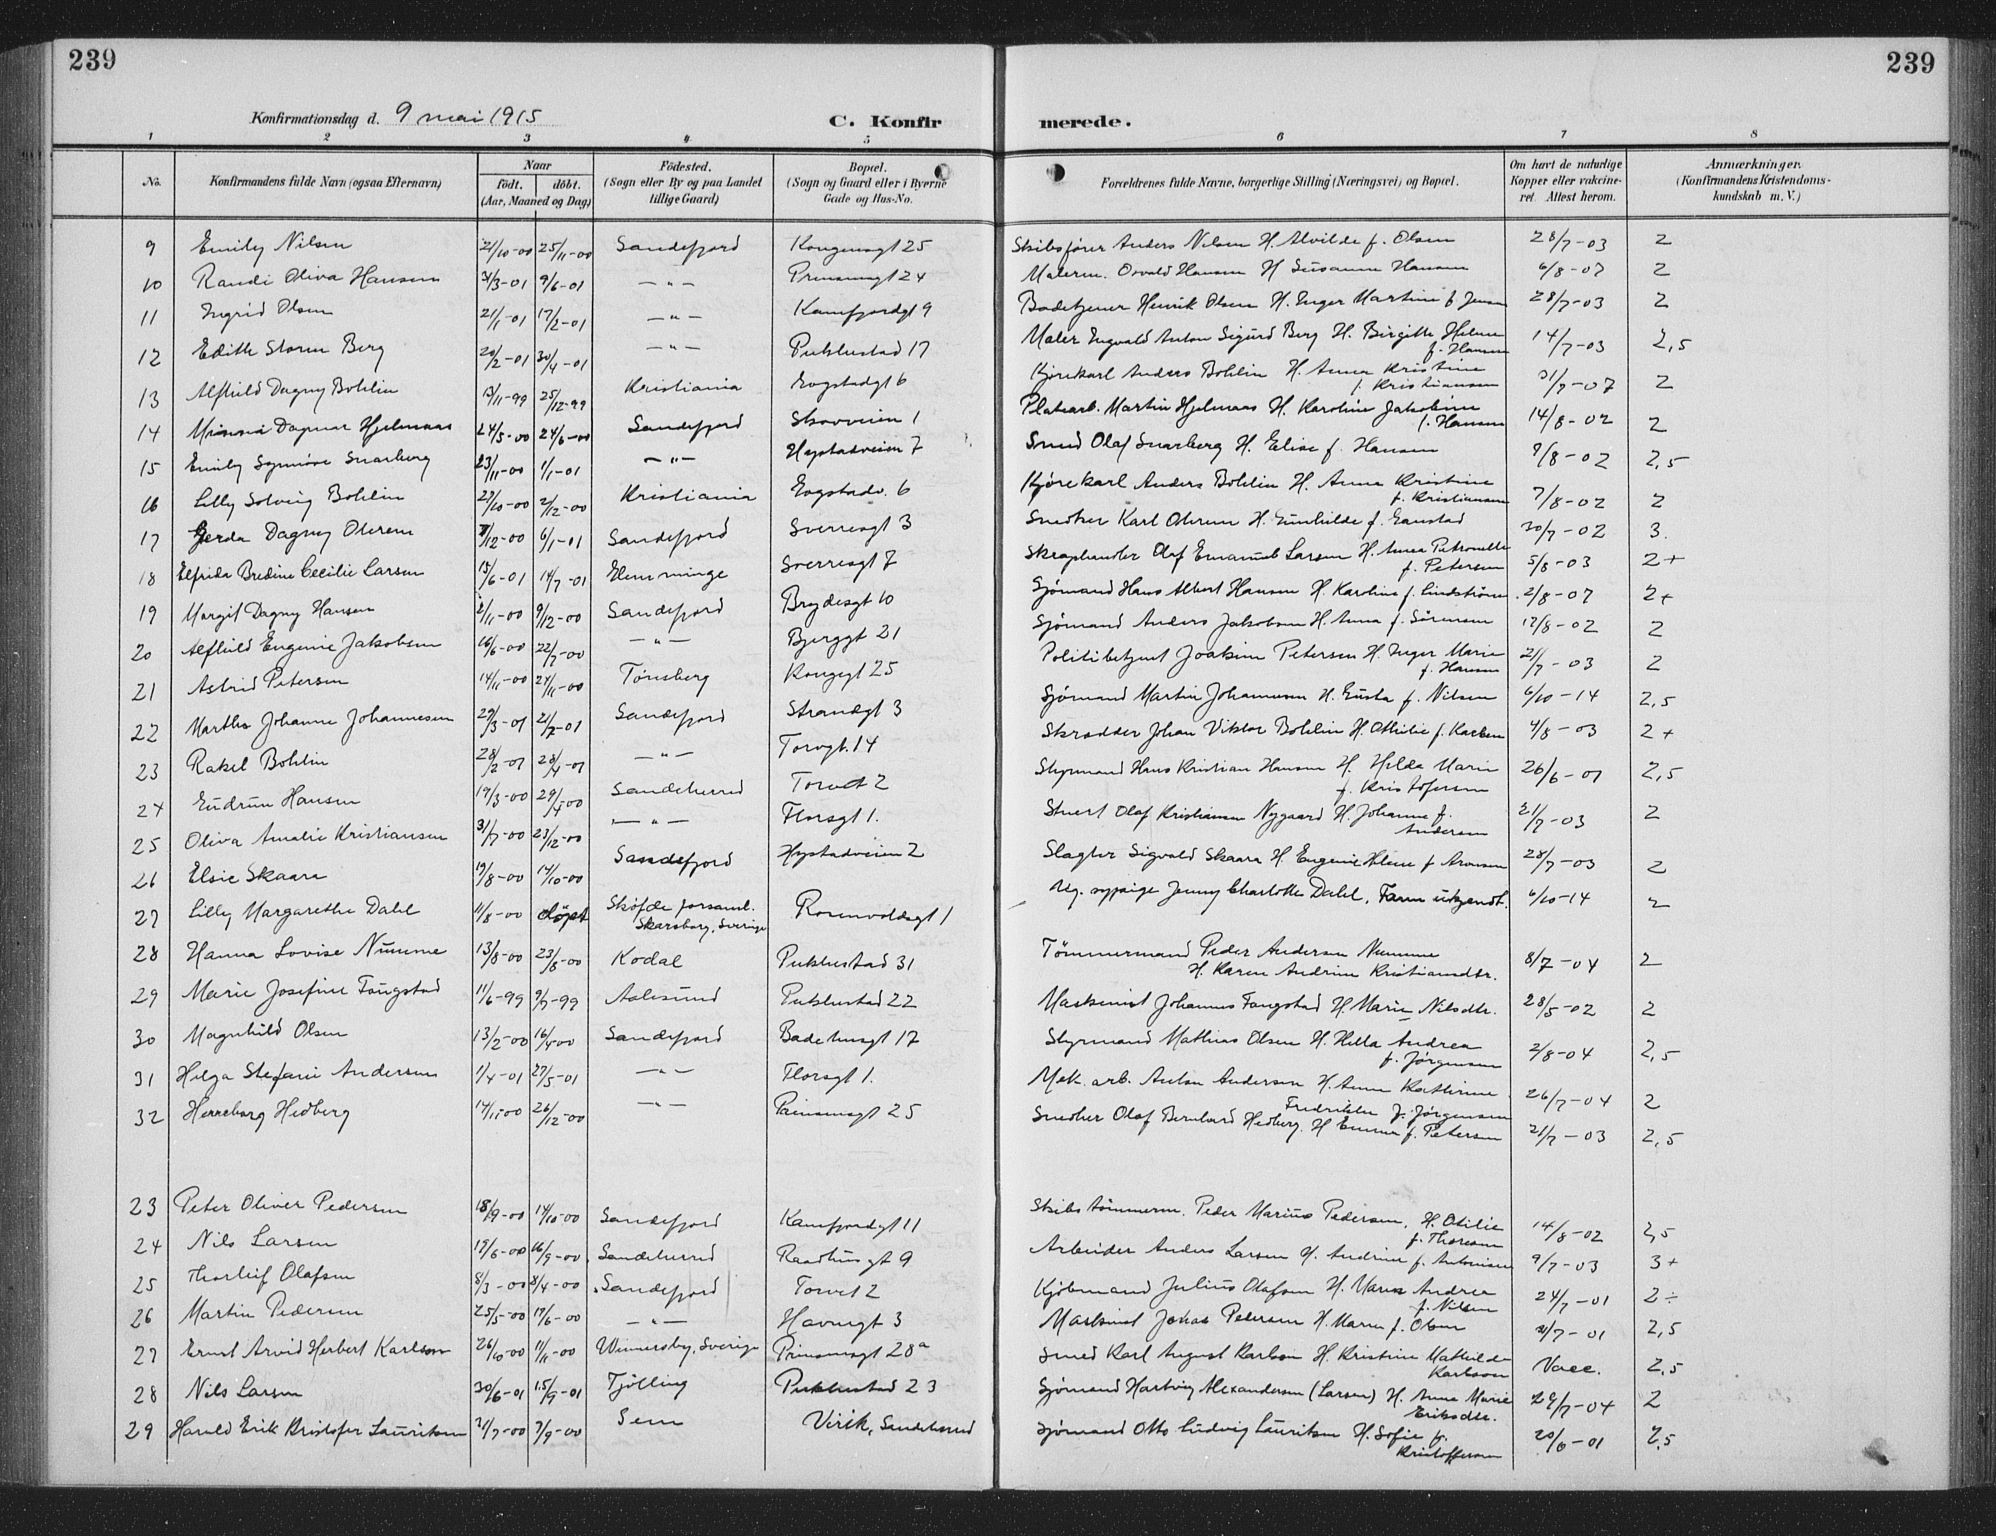 239
239
Konfirmationsdag d. 9 mai 1915
C. Konfirmerede.
1 2 3 4 5 6 7 8
No. Konfirmandens fulde Navn (ogsaa Efternavn) Naar födt. döbt. (Aar, Maaned og Dag) Födested. (Sogn eller By og paa Landet tillige Gaard) Bopæl. (Sogn og Gaard eller i Byerne Gade og Hus-No. Forældrenes fulde Navne, borgerlige Stilling (Næringsvei) og Bopæl. Om havt de naturlige Kopper eller vakcineret. Attest herom. Anmærkninger. (Konfirmandens Kristendomskundskab m. V.)
9 Emily Nilsen 21/10-00 25/11-00 Sandefjord Kongensgt 25 Skibsfører Anders Nilsen H. Alvilde f. Olsen 28/7-03 2
10 Randi Oliva Hansen 31/3-01 9/6-01 — " — Prinsensgt 24 Malerm. Osvald Hansen H. Susanne Hansen 6/8-07 2
11 Ingrid Olsen 21/1-01 17/2-01 — " — Kamfjordgt 9 Badetjener Henrik Olsen H. Inger Martine f. Jensen 28/7-03 2
12 Edith Storm Berg 20/2-01 30/4-01 — " — Pukkestad 17 Maler Ingvald Anton Sigurd Berg H. Birgitte Helene f. Hansen 14/7-03 2,5
13 Alfhild Dagny Bohlin 13/11-99 25/12-99 Kristiania Bogstadgt 6 Kjørekarl Anders Bohlin H. Anna Kristine f. Kristiansen 31/7-07 2
14 Minni Dagmar Hjelmaas 24/5-00 24/6-00 Sandefjord Skovveien 1 Platearb. Martin Hjelmaas H. Karoline Jakobine f. Hansen 14/8-02 2
15 Emily Synnöve Snarberg 23/11-00 1/1-01 — " — Hystadveien 7 Smed Olaf Snarberg H. Elise f. Hansen 9/8-02 2,5
16 Lilly Solveig Bohlin 27/10-00 2/12-00 Kristiania Bogstadv. 6 Kjørekarl Anders Bohlin H. Anna Kristine f. Kristiansen 7/8-02 2
17 Gerda Dagny Olerem 7/12-00 6/1-01 Sandefjord Sverresgt 3 Snedker Karl Olerem H. Gunhilde f. Gaustad 30/7-02 3.
18 Elfrida Bredine Cecilie Larsen 15/6-01 14/7-01 Elemminge Sverresgt 7 Skraphandler Olaf Emanuel Larsen H. Anna Petronelle f. Petersen 5/8-03 2+
19 Margit Dagny Hansen 2/11-00 9/12-00 Sandefjord Brydesgt 10 Sjømand Hans Albert Hansen H. Karoline f. Lindstrøm. 2/8-07 2+
20 Alfhild Eugenie Jakobsen 16/6-00 22/7-00 — " — Bjerggt 21 Sjømand Anders Jakobsen H. Anna f. Sörensen 12/8-02 2
21 Astrid Petersen 14/11-00 24/11-00 Tönsberg Kongegt 25 Politibetjent Joakim Petersen H. Inger Marie f. Hansen 21/7-03 2
22 Martha Johanne Johannesen 29/3-01 21/7-01 Sandefjord Strandgt 3 Sjømand Martin Johannesen H. Gusta f. Nilsen 6/10-14 2,5
23 Rakel Bohlin 28/2-01 28/4-01 — " — Torvgt. 14 Skrædder Johan Viktor Bohlin H. Othilie f. Karlsen 4/8-03 2+
24 Gudrun Hansen 19/3-00 29/4-00 Sandeherred Torvet 2 Styrmand Hans Kristian Hansen H. Hilda Marie f. Kristofersen 26/6-01 2,5
25 Oliva Amalie Kristiansen 31/7-00 23/12-00 — " — Florsgt 1. Stuert Olaf Kristiansen Nygaard H. Johanne f. Andersen 21/7-03 2
26 Elsie Skaara 19/8-00 14/10-00 Sandefjord Hystadveien 2 Slagter Sigvald Skaara H. Eugenie Helene f. Aronsen 28/7-03 2
27 Lilly Margarethe Dahl 11/8-00 døpt Sköfde forsaml. Skarsborg, Sverige Rosenvoldsgt 1 Ug. sypige Jenny Charlotte Dahl, Faren ukjendt. 6/10-14 2
28 Hanna Lovise Numme 13/8-00 23/8-00 Kodal Pukkestad 31 Tömmermand Peder Andersen Numme H. Karen Andrine Kristiansdtr. 8/7-04 2
29 Marie Josefine Fangstad 11/6-99 9/7-99 Aalesund Pukkestad 22 Maskinist Johannes Fangstad H. Marie Nilsdtr. 28/5-02 2
30 Magnhild Olsen 13/2-00 16/4-00 Sandefjord Badehusgt 17 Styrmand Mathias Olsen H. Hella Andrea f. Jørgensen 2/8-04 2,5
31 Helga Stefani Andersen 1/4-01 27/5-01 — " — Florsgt 1. Mek. arb. Anton Andersen H. Anna Kathrine Fredrikke f. Jørgensen 26/7-04 2
32 Herreborg Hedberg 14/11-00 26/12-00 — " — Prinsensgt 25 Snedker Olaf Bernhard Hedberg. H. Emma f. Petersen 21/7-03 2,5
23 Peter Oliver Pedersen 18/9-00 14/10-00 Sandefjord Kamfjordgt 11 Skibstömmerm. Peder Marius Pedersen, H. Otilie f. Thoresen 14/8-02 2,5
24 Nils Larsen 17/6-00 16/9-00 Sandeherred Raadhusgt 9 Arbeider Anders Larsen H. Andrine f. Antonisen 9/7-03 3+
25 Thorleif Olafsen 8/3-00 8/4-00 Sandefjord Torvet 2 Kjöbmand Julius Olafsen H. Maren Andrea f. Nilsen 24/7-01 2÷
26 Martin Pedersen 25/5-00 17/6-00 — " — Havnegt 3 Maskinist Johas Petersen H. Maren f. Olsen 21/7-01 2,5
27 Ernst Arvid Herbert Karlsson 26/10-00 11/11-00 Wenersby, Sverige Prinsensgt 28a Smed Karl August Karlson H. Kristine Mathilde Karlsson Vacc. 2,5
28 Nils Larsen 30/6-01 15/9-01 Tjölling Pukkestad 23 Sjømand Hartvig Alexandersen (Larsen) H. Anna Marie Eriksdtr. 29/7-04 2
29 Harald Erik Kristofer Lauritsen 21/7-00 7/9-00 Sem Virik, Sandeherred Sjømand Otto Ludvig Lauritsen H. Sofie f. Kristoffersen 20/6-01 2,5